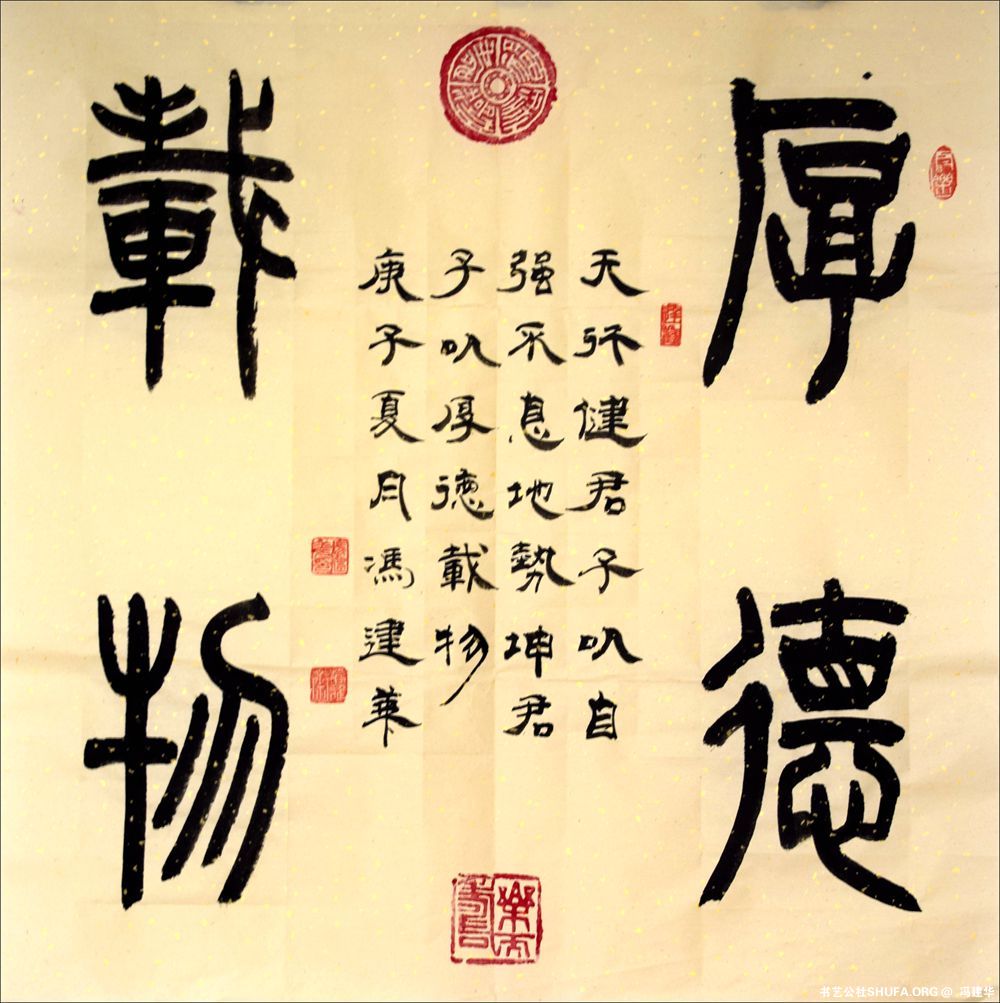 厚德
載物
天行健君子以自
强不息地勢坤君
子以厚德載物
庚子夏月馮建華
书艺公社SHUFA.ORG @ 冯建华